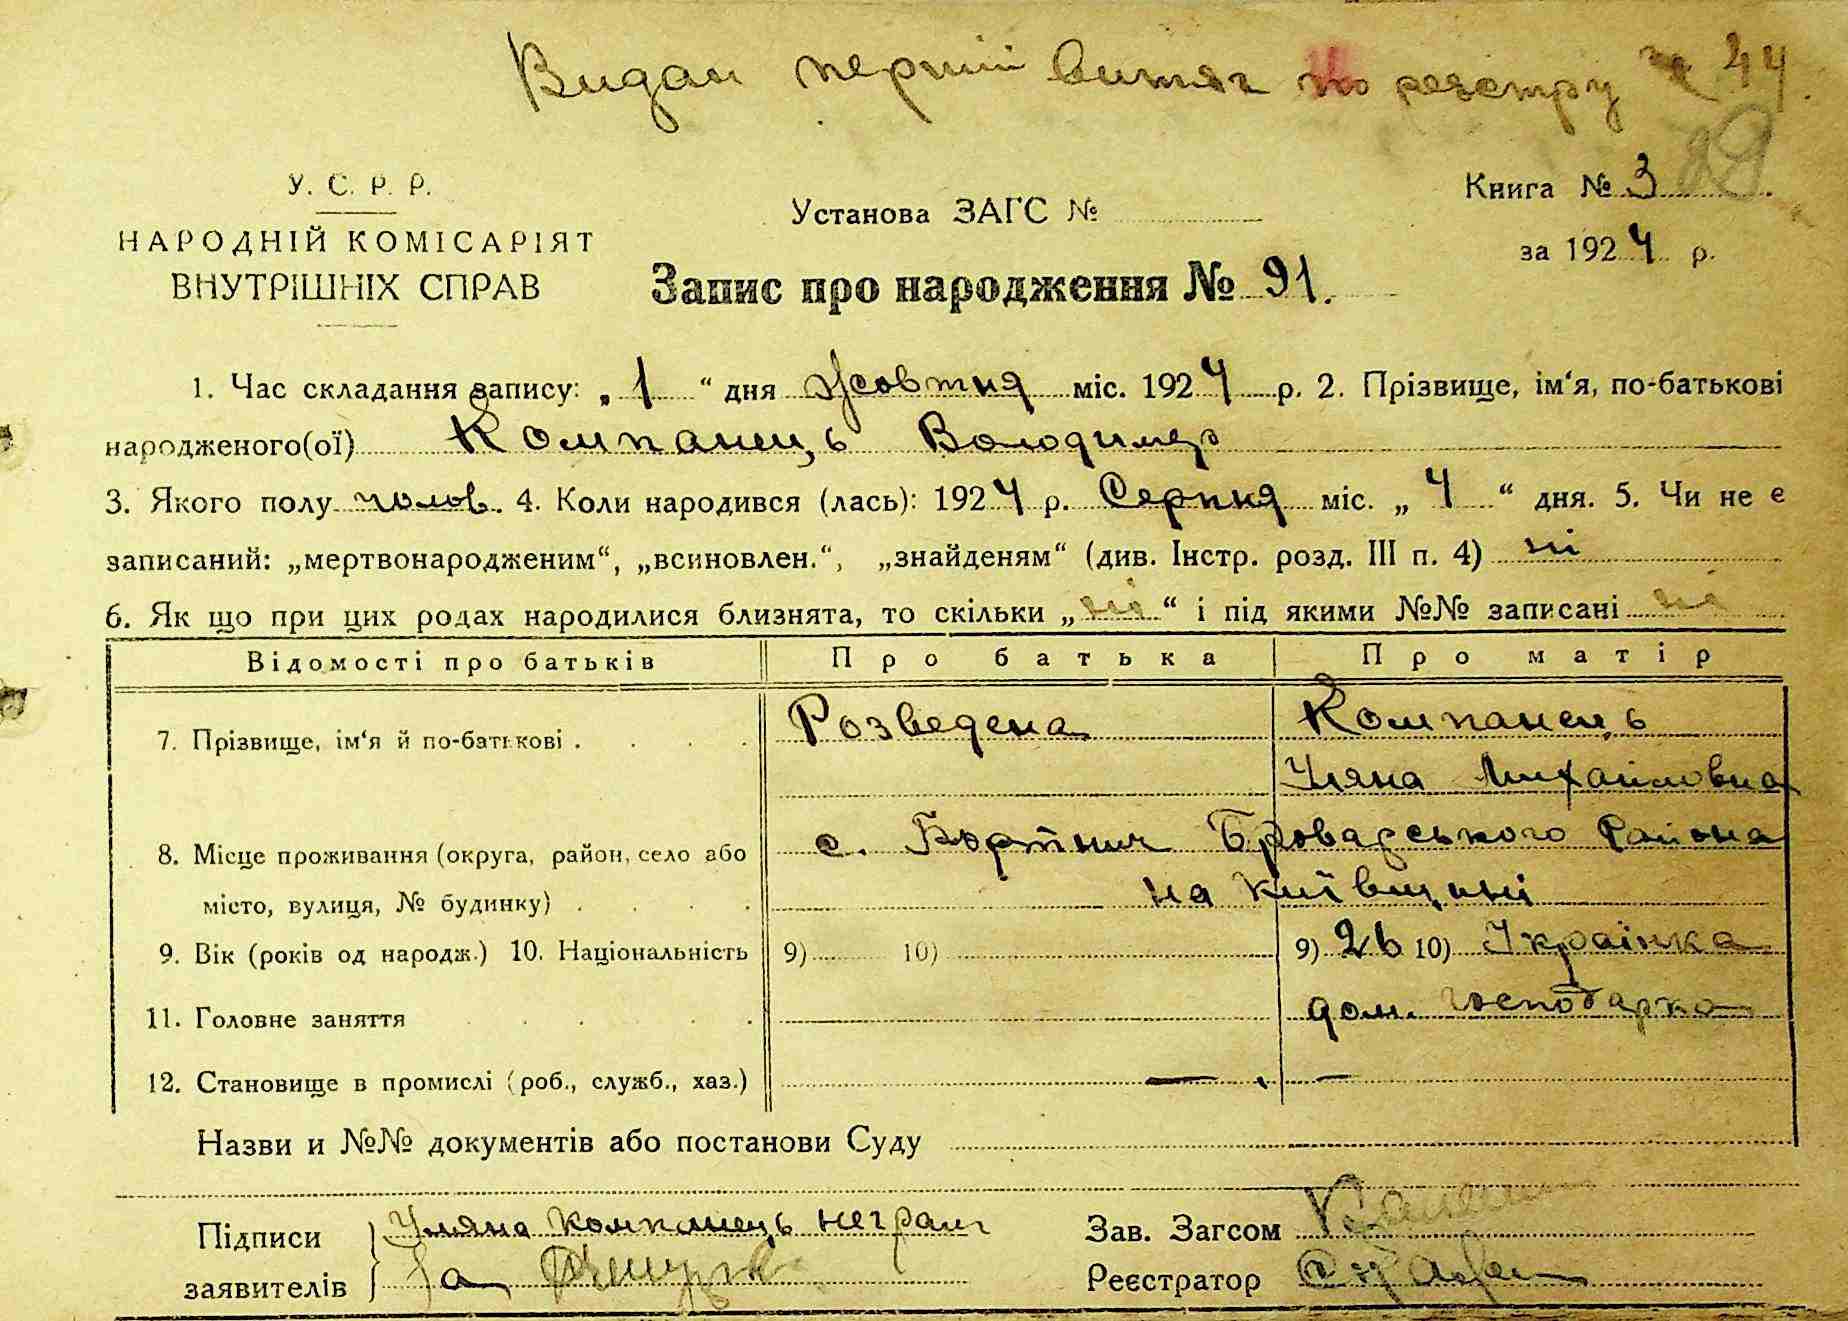 Видан перший витяг по реєстру № 44
У. С. Р. Р.
НАРОДНІЙ КОМІСАРІЯТ
ВНУТРІШНІХ СПРАВ
Установа ЗАГС №
Книга № 3 29
за 1924 р.
Запис про народження № 91.
1. Час складання запису: „ 1 “ дня Жовтня міс. 1924 р. 2. Прізвище, ім‘я, по-батькові
народженого(ої) Компанець Володимер
3. Якого полу чолов. 4. Коли народився (лась): 1924 р. Серпня міс. „ 4 “ дня. 5. Чи не є
записаний: „мертвонародженим“, „всиновлен.“, „знайденям“ (див. Інстр. розд. III п. 4) ні
6. Як що при цих родах народилися близнята, то скільки „ ні “ і під якими №№ записані ні
Відомості про батьків Про батька Про матір
7. Прізвище, ім‘я й по-батькові . . . . Розведена Компанець
Уляна Михайловна
8. Місце проживання (округа, район, село або с. Бортнич Броварського Района
місто, вулиця, № будинку) . . . . на Київщині
9. Вік (років од народж.) 10. Національність 9) 10) 9) 26 10) Українка
11. Головне заняття . . . . дом. господарка
12. Становище в промислі (роб., служб., хаз.) — —
Назви и №№ документів або постанови Суду
Підписи Уляна Компанець неграм
заявителів За
Зав. Загсом
Реєстратор